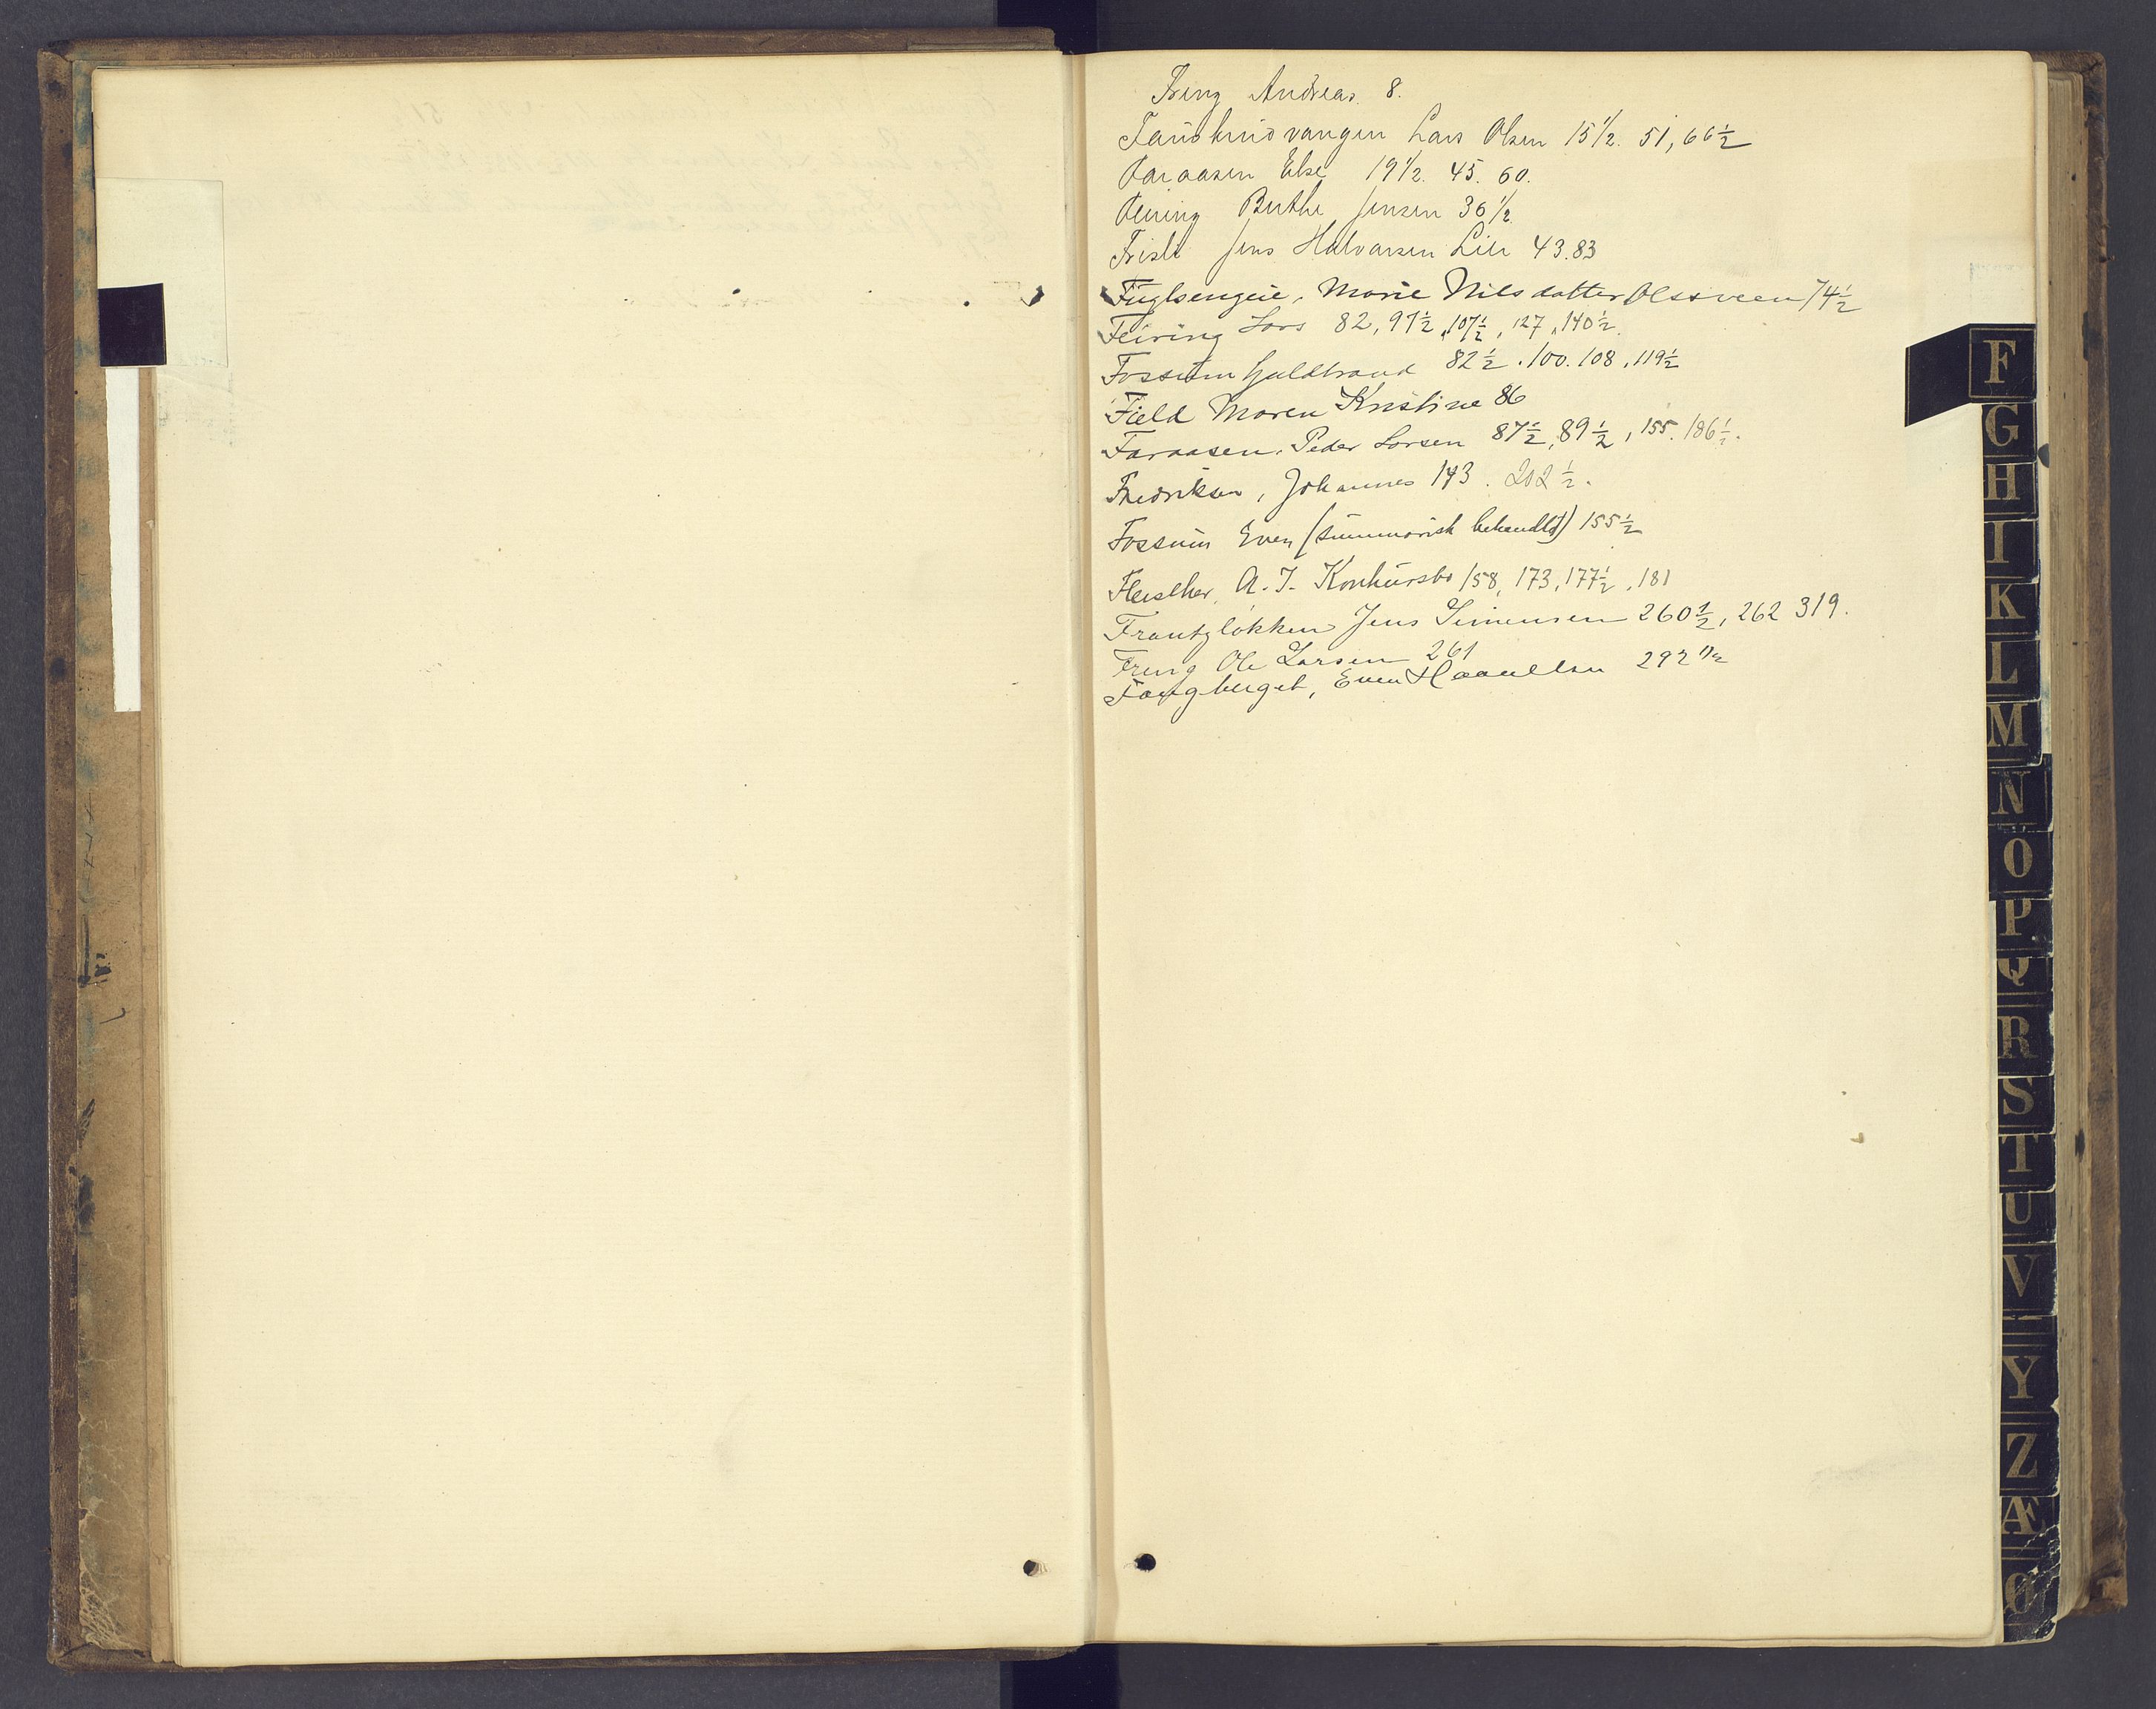 Freng Andreas. 8.
Fauskrudvangen Lars Olsen 15 1/2. 51, 66 1/2
Faraasen Else 19 1/2. 45. 60.
Feiring Berthe Jensen 36 1/2
Friske Jens Halvorsen Lier 43.83
Fuglsengeie, Marie Nilsdatter Olssveen 74 1/2
Feiring Lars 82, 97 1/2, 107 1/2, 127, 140 1/2
Fossum Guldbrand 82 1/2. 100. 108, 119 1/2
Field Maren Kristine 86
Faraasen, Peder Larsen 87 1/2, 89 1/2, 155. 186 1/2.
Fredriksen, Johannes 143. 202 1/2.
Fossum Even (summarisk behandlet) 155 1/2
Fleischer, A. J. Konkursbo 158, 173, 177 1/2, 181
Frantzløkken Jens Simensen 260 1/2, 262 319.
Freng Ole Larsen 261
Fangberget, Even Haavelsen 292
F
G
H
I
K
L
M
N
O
P
Q
R
S
T
U
V
Y
Z
Æ
Ø